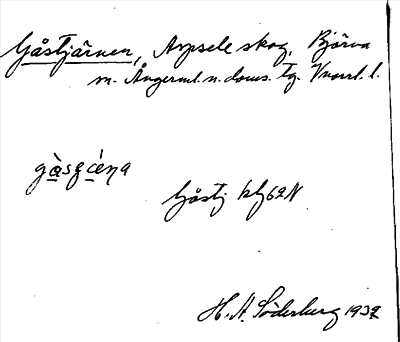 Gåstjärnen, Arpsele skog, Björna
m. Ångerml. n. doms. tg. Vnorrl. l.
gåsɕɛ́ṇa
Gåstj kbl 62 N
H. A. Söderberg 1932